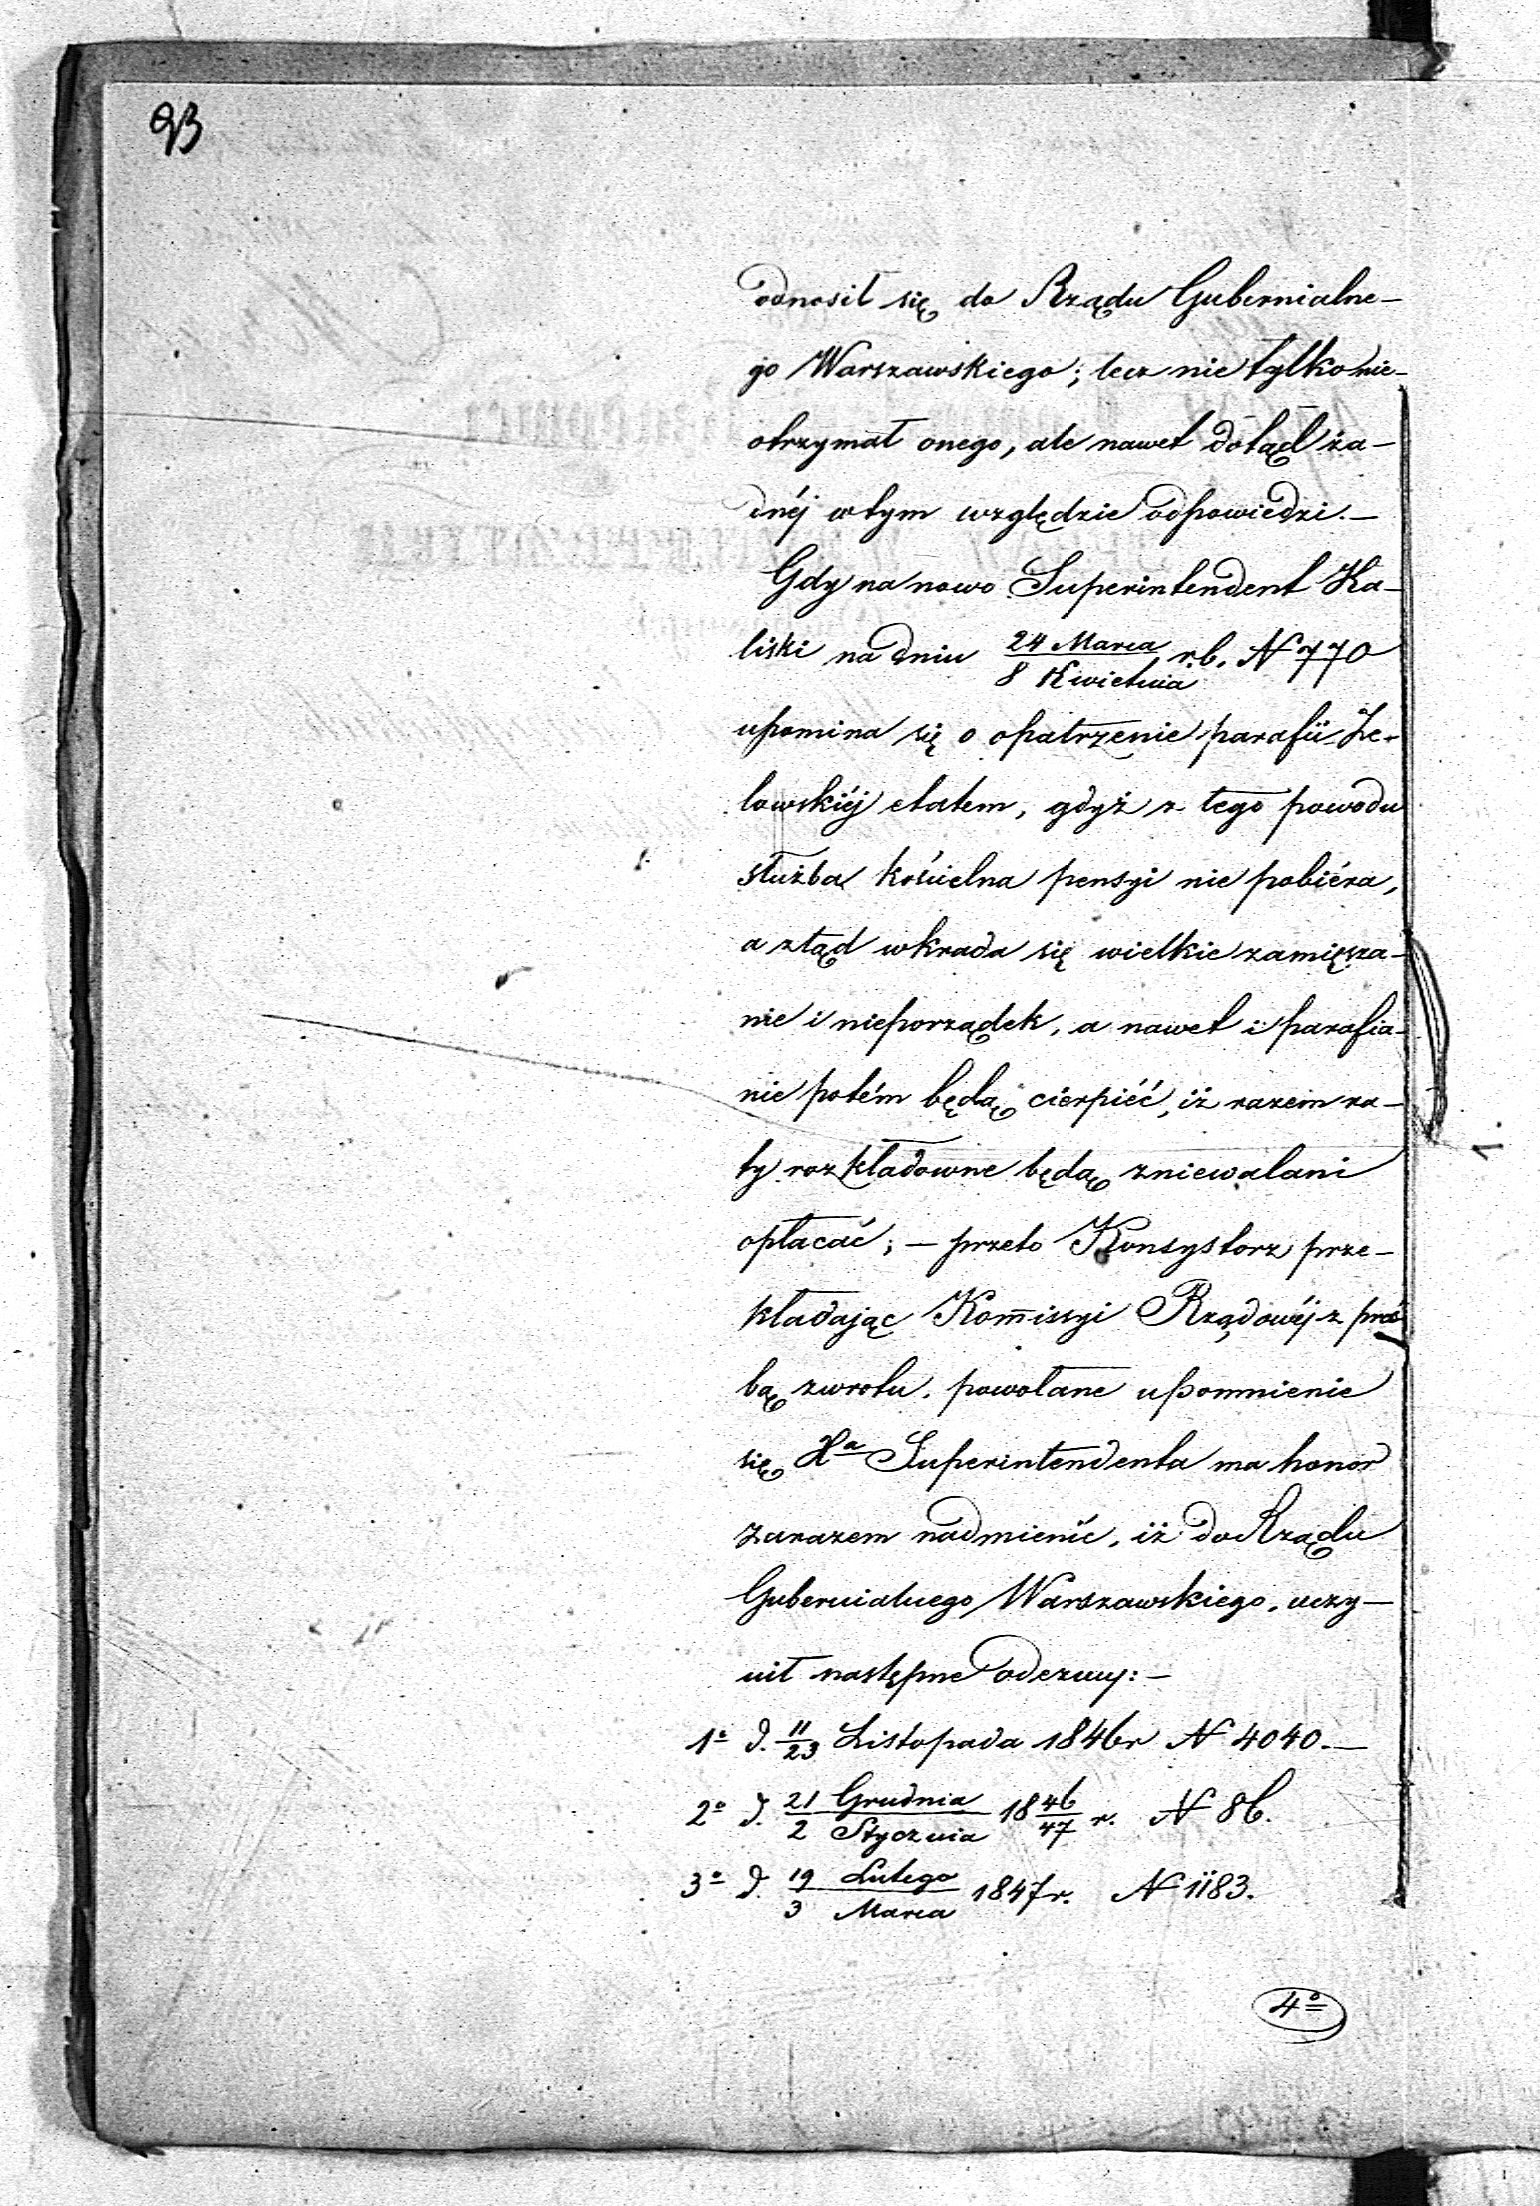 93
odnosił się do Rządu Gubernialne—
go Warszawskiego; lecz nie tylko nie—
otrzymał onego, ale nawet dotąd ża—
dnéj w tym względzie odpowiedzi.—
Gdy na nowo Superintendent Ka—
liski na dniu 24 Marca / 8 Kwietnia r.b. N 770
upomina się o opatrzenie parafii Ze-
lowskiéj etatem, gdyż z tego powodu
służba kościelna pensyi nie pobiéra,
a ztąd wkrada się wielkie zamięsza—
nie i nieporządek, a nawet i parafia—
nie potém będą cierpiéć, iż razem ra—
ty rozkładowne będą zniewalani
opłacać; — przeto Konsystorz prze—
kładając Komissyi Rządowéj z proś
bą zwrotu, powołane upomnienie
się Xa Superintendenta ma honor
zarazem nadmienić, iż do Rządu
Gubernialnego Warszawskiego, uczy—
nił następne odezwy:—
1o d. 11/23 Listopada 1846r N 4040.—
2o d. 21 Grudnia / 2 Stycznia 18 46/47 r. N 86.
3o d. 19 Lutego / 3 Marca 1847r. N 1183.
4o
1.